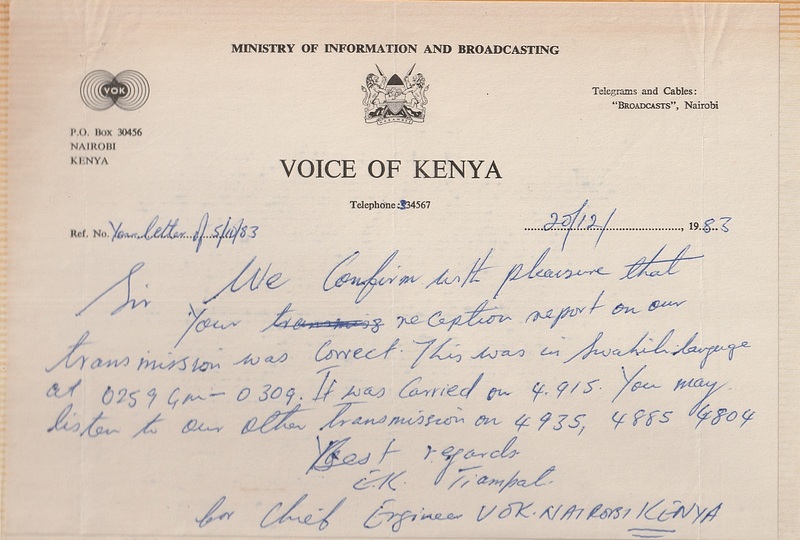 MINISTRY OF INFORMATION AND BROADCASTING
VOK
Telegrams and Cables:
"BROADCASTS", Nairobi
P.O. Box 30456
NAIROBI
KENYA
VOICE OF KENYA
Telephone: 334567
Ref. No. Your letter of 5/11/83
20/12/, 1983
Sir We Confirm with pleasure that
Your transmis reception report on our
transmission was correct. This was in Swahili languge
at 0259 Gm- 0309. It was Carried on 4.915. You may
listen to our other transmission on 4935, 4885 4804
Best regards
for Chief Engineer VOK. NAIROBI KENYA